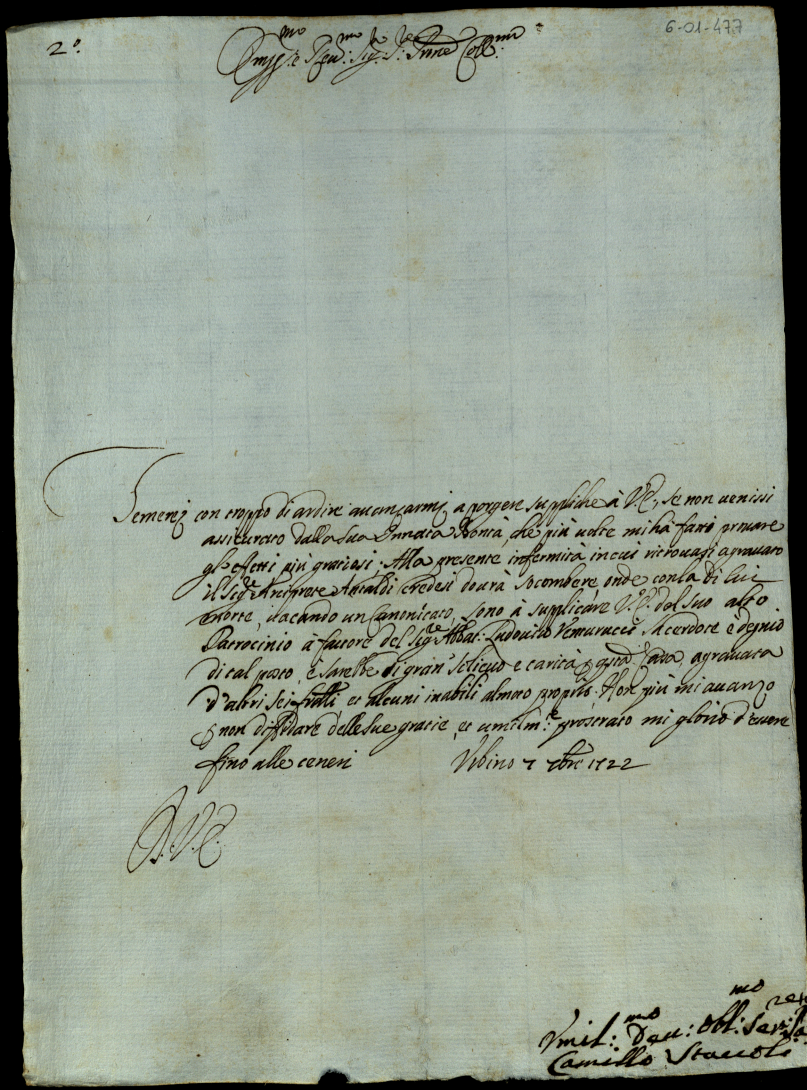 6-01-477
2º.
Em.mo e Reu.mo Sig.r Sig.re Prone Coll.mo
Temerei con troppo di ardire auanzarmi a porgere suppliche à V.E., se non uenissi
assicurato dalla sua Innata Bontà che più uolte mi hà fatto prouare
gli effetti più gratiosi; Alla presente infermità in cui ritrouasi agrauato
il Sig.re Antaldi credesi dourà socombere, onde con la di lui
morte, uacando un Canonicato, sono à supplicare V.E. dal suo alto
Patrocinio à fauore del Sig.re Abbat: Ludouico Venturucci Sacerdote e degnio
di tal posto, e sarebbe di gran solieuo e carità questa Casa, agrauata
d'altri sei fratelli, et alcuni inabili al moto proprio. Non più mi auanzo
non diffidare delle sue gratie, et umilm.te prostrato mi glorio d'essere
fino alle ceneri Vrbino 7 7bre 1722
D. V. E.
Vmil.mo Deu: Obl.mo Ser.re
Camillo Staccoli